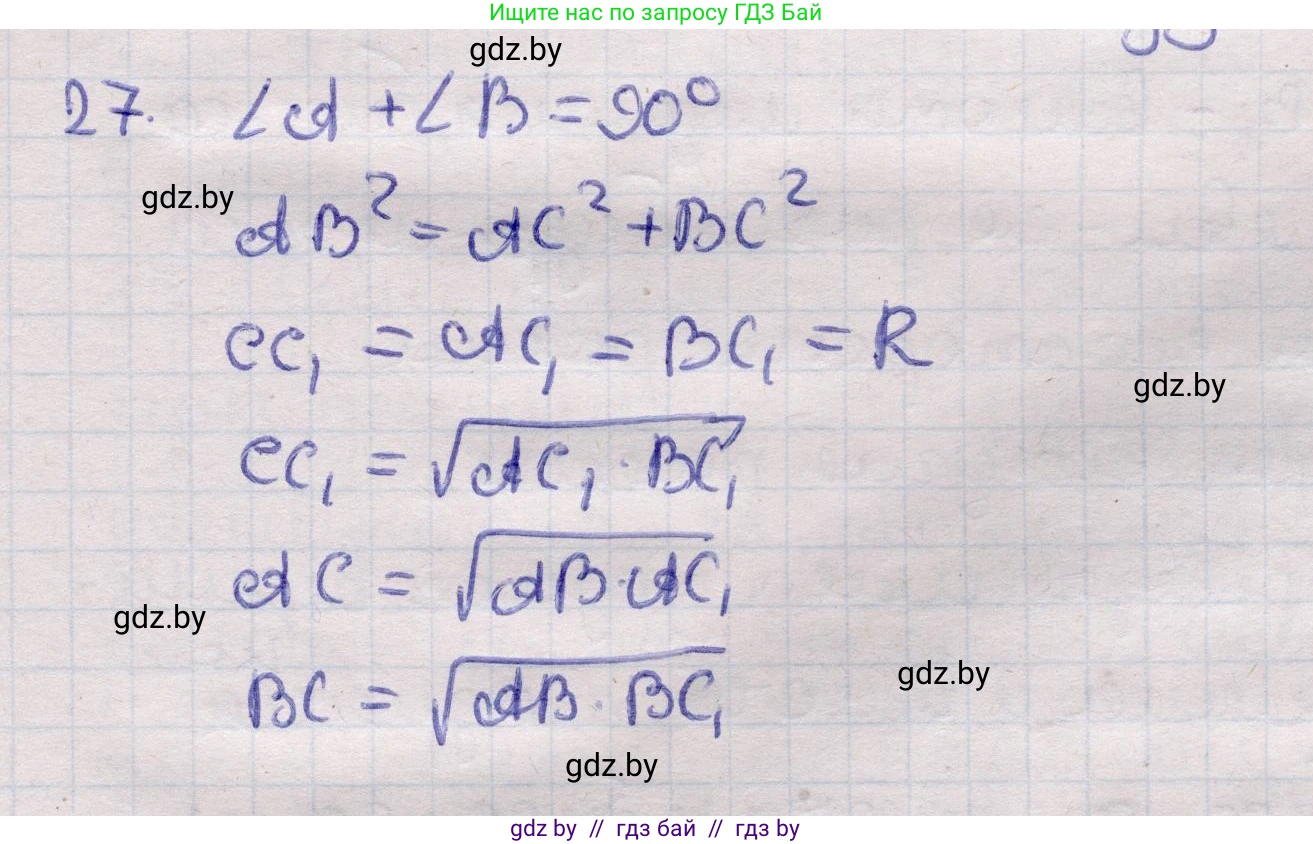 Ищите нас по запросу ГДЗ Бай
gdz.by
27. ∠A + ∠B = 90°
gdz.by
AB² = AC² + BC²
CC₁ = AC₁ = BC₁ = R
gdz.by
CC₁ = √(AC₁ · BC₁)
AC = √(AB · AC₁)
gdz.by
gdz.by
BC = √(AB · BC₁)
gdz.by
gdz.by // гдз бай // гдз by